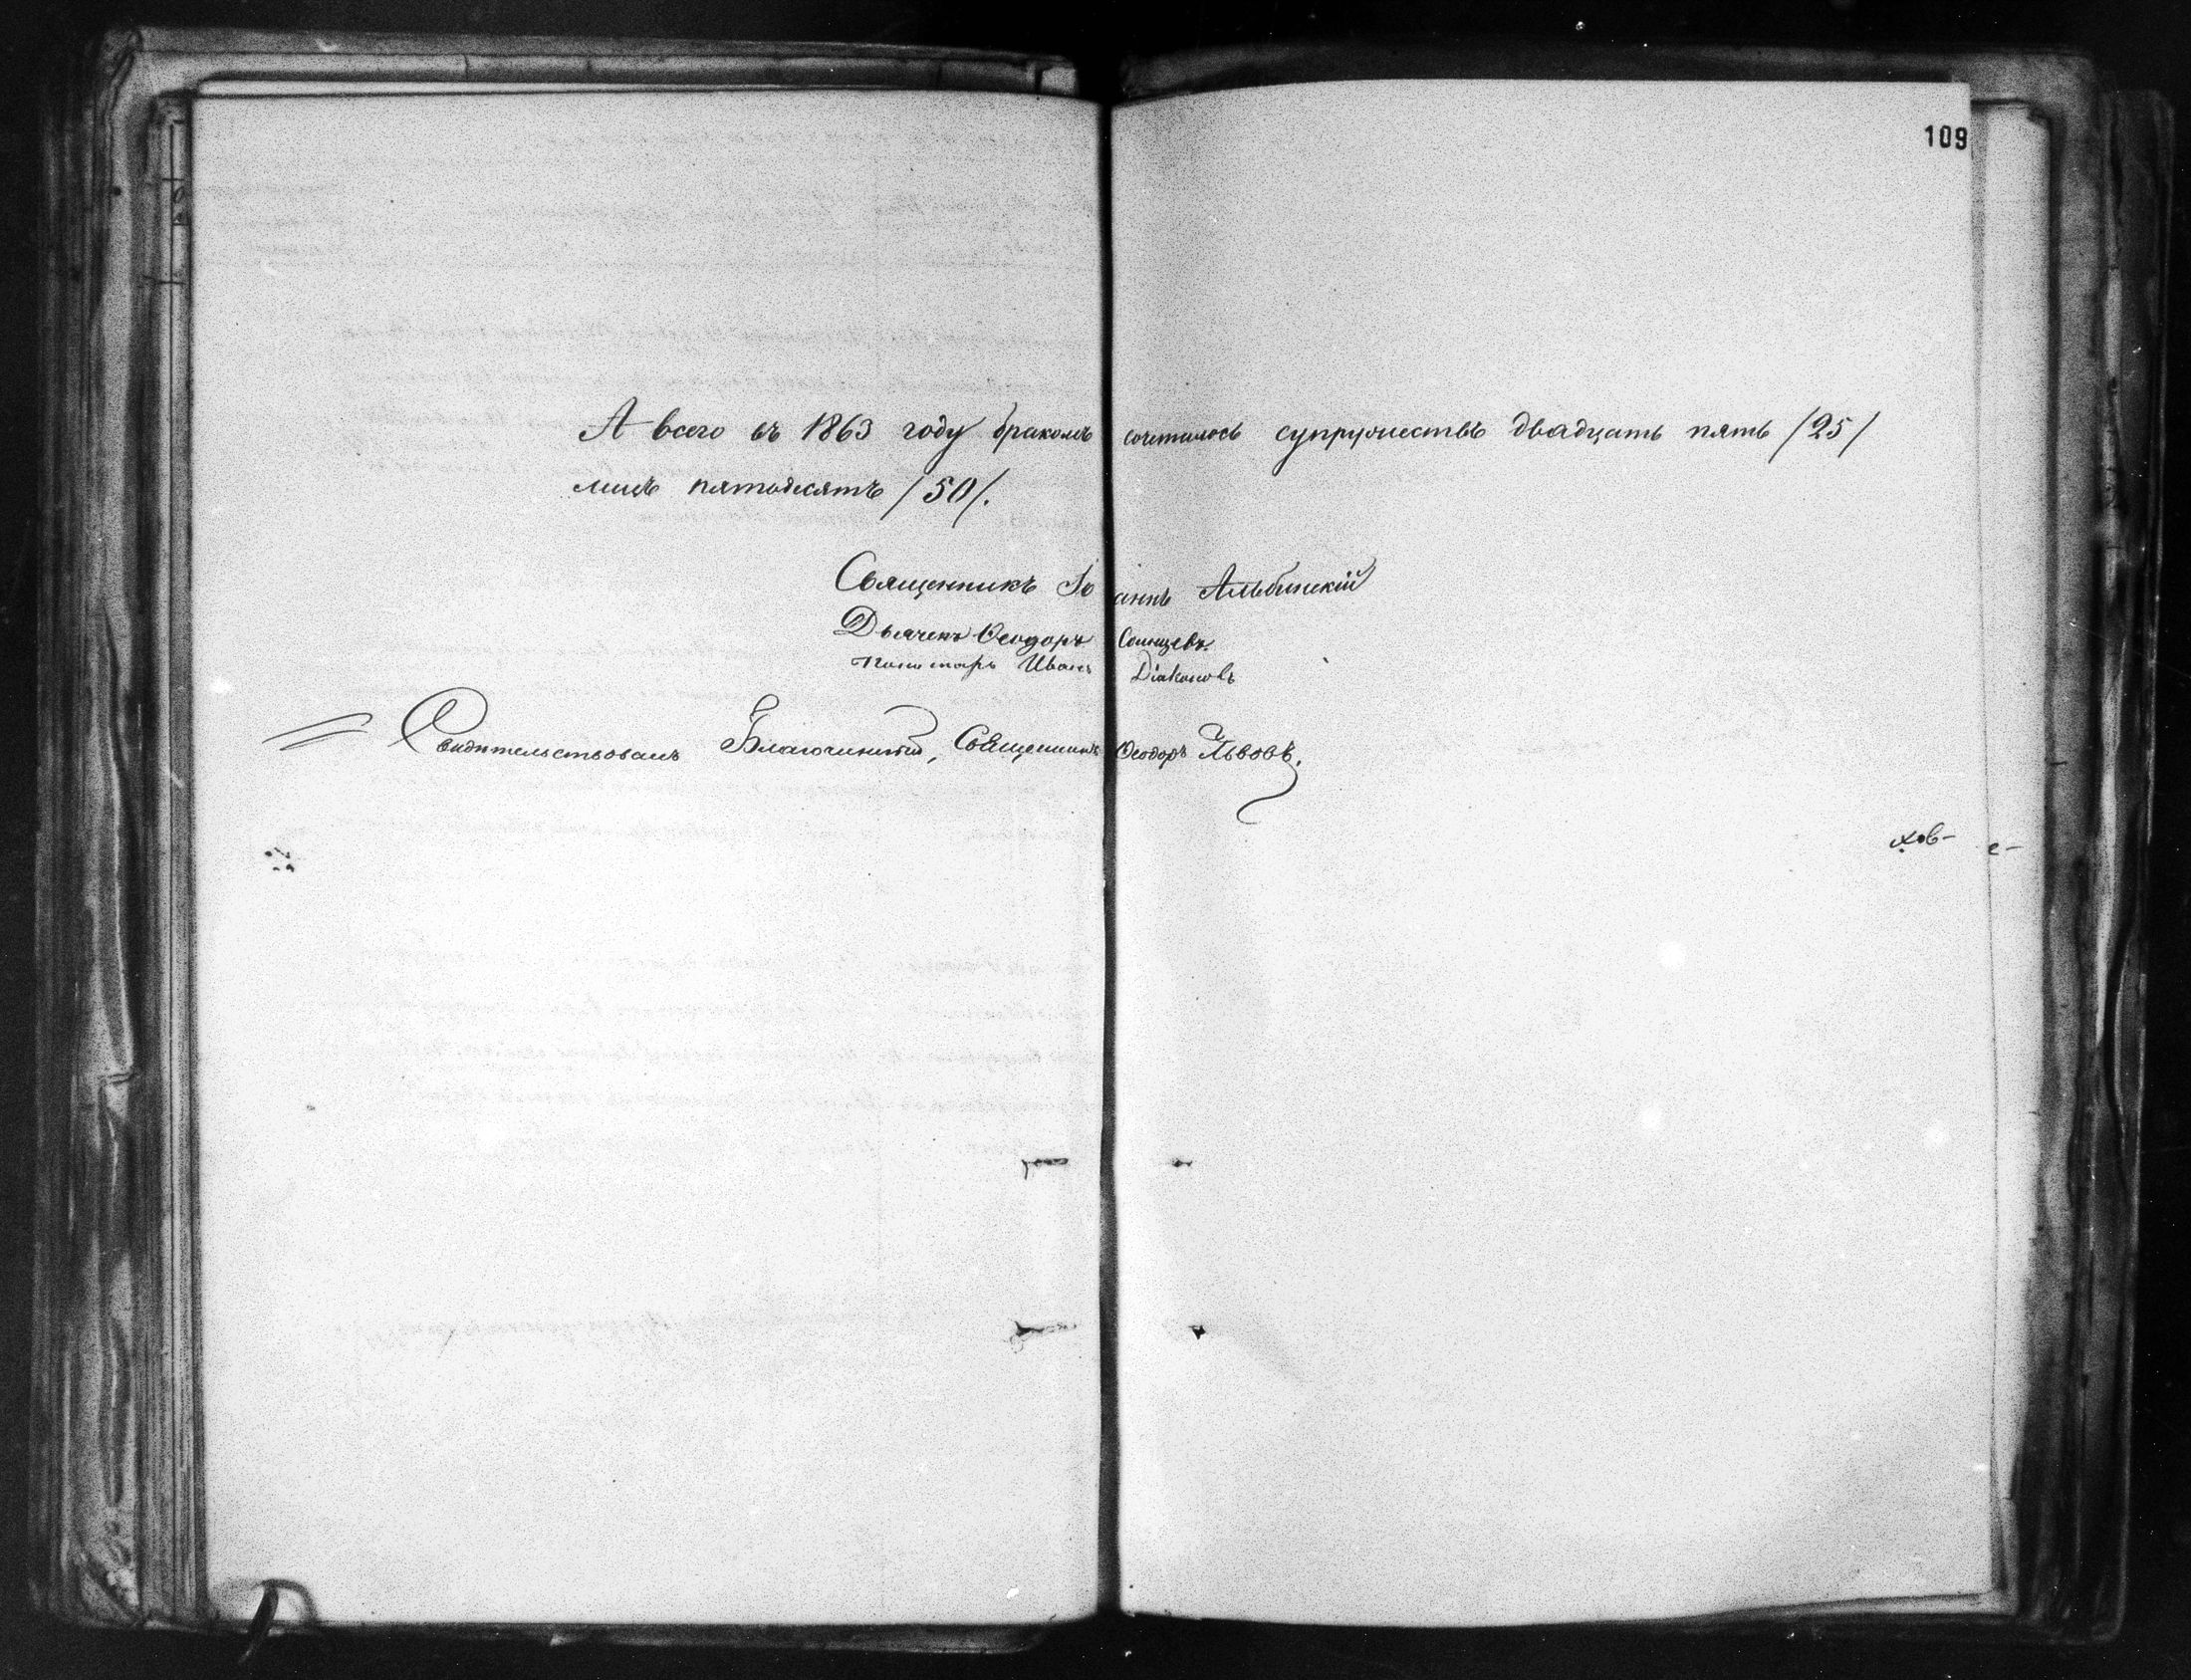 109
А всего въ 1863 году бракомъ сочеталось супружествъ двадцать пять /25/
лицъ пятьдесятъ /50/.
Священникъ Іоаннъ Альбинскій
Дьячекъ Ѳеодоръ
Пономарь Иванъ Діаконовъ
Свидѣтельствовалъ Благочинный, Священникъ Ѳеодоръ Львовъ.